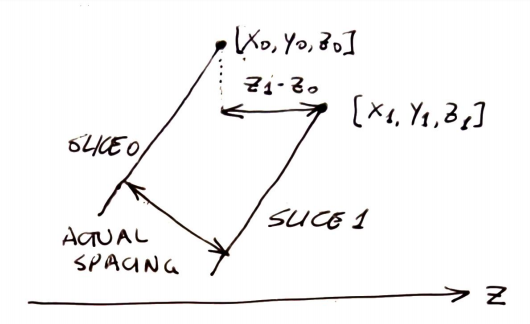 [X0, Y0, Z0]
Z1-Z0
[X1, Y1, Z1]
SLICE 0
SLICE 1
ACTUAL
SPACING
Z